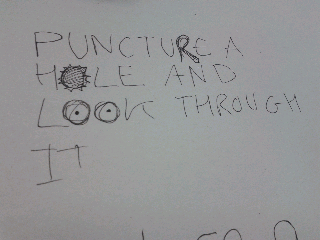 PUNCTURE A
HOLE AND
LOOK THROUGH
IT